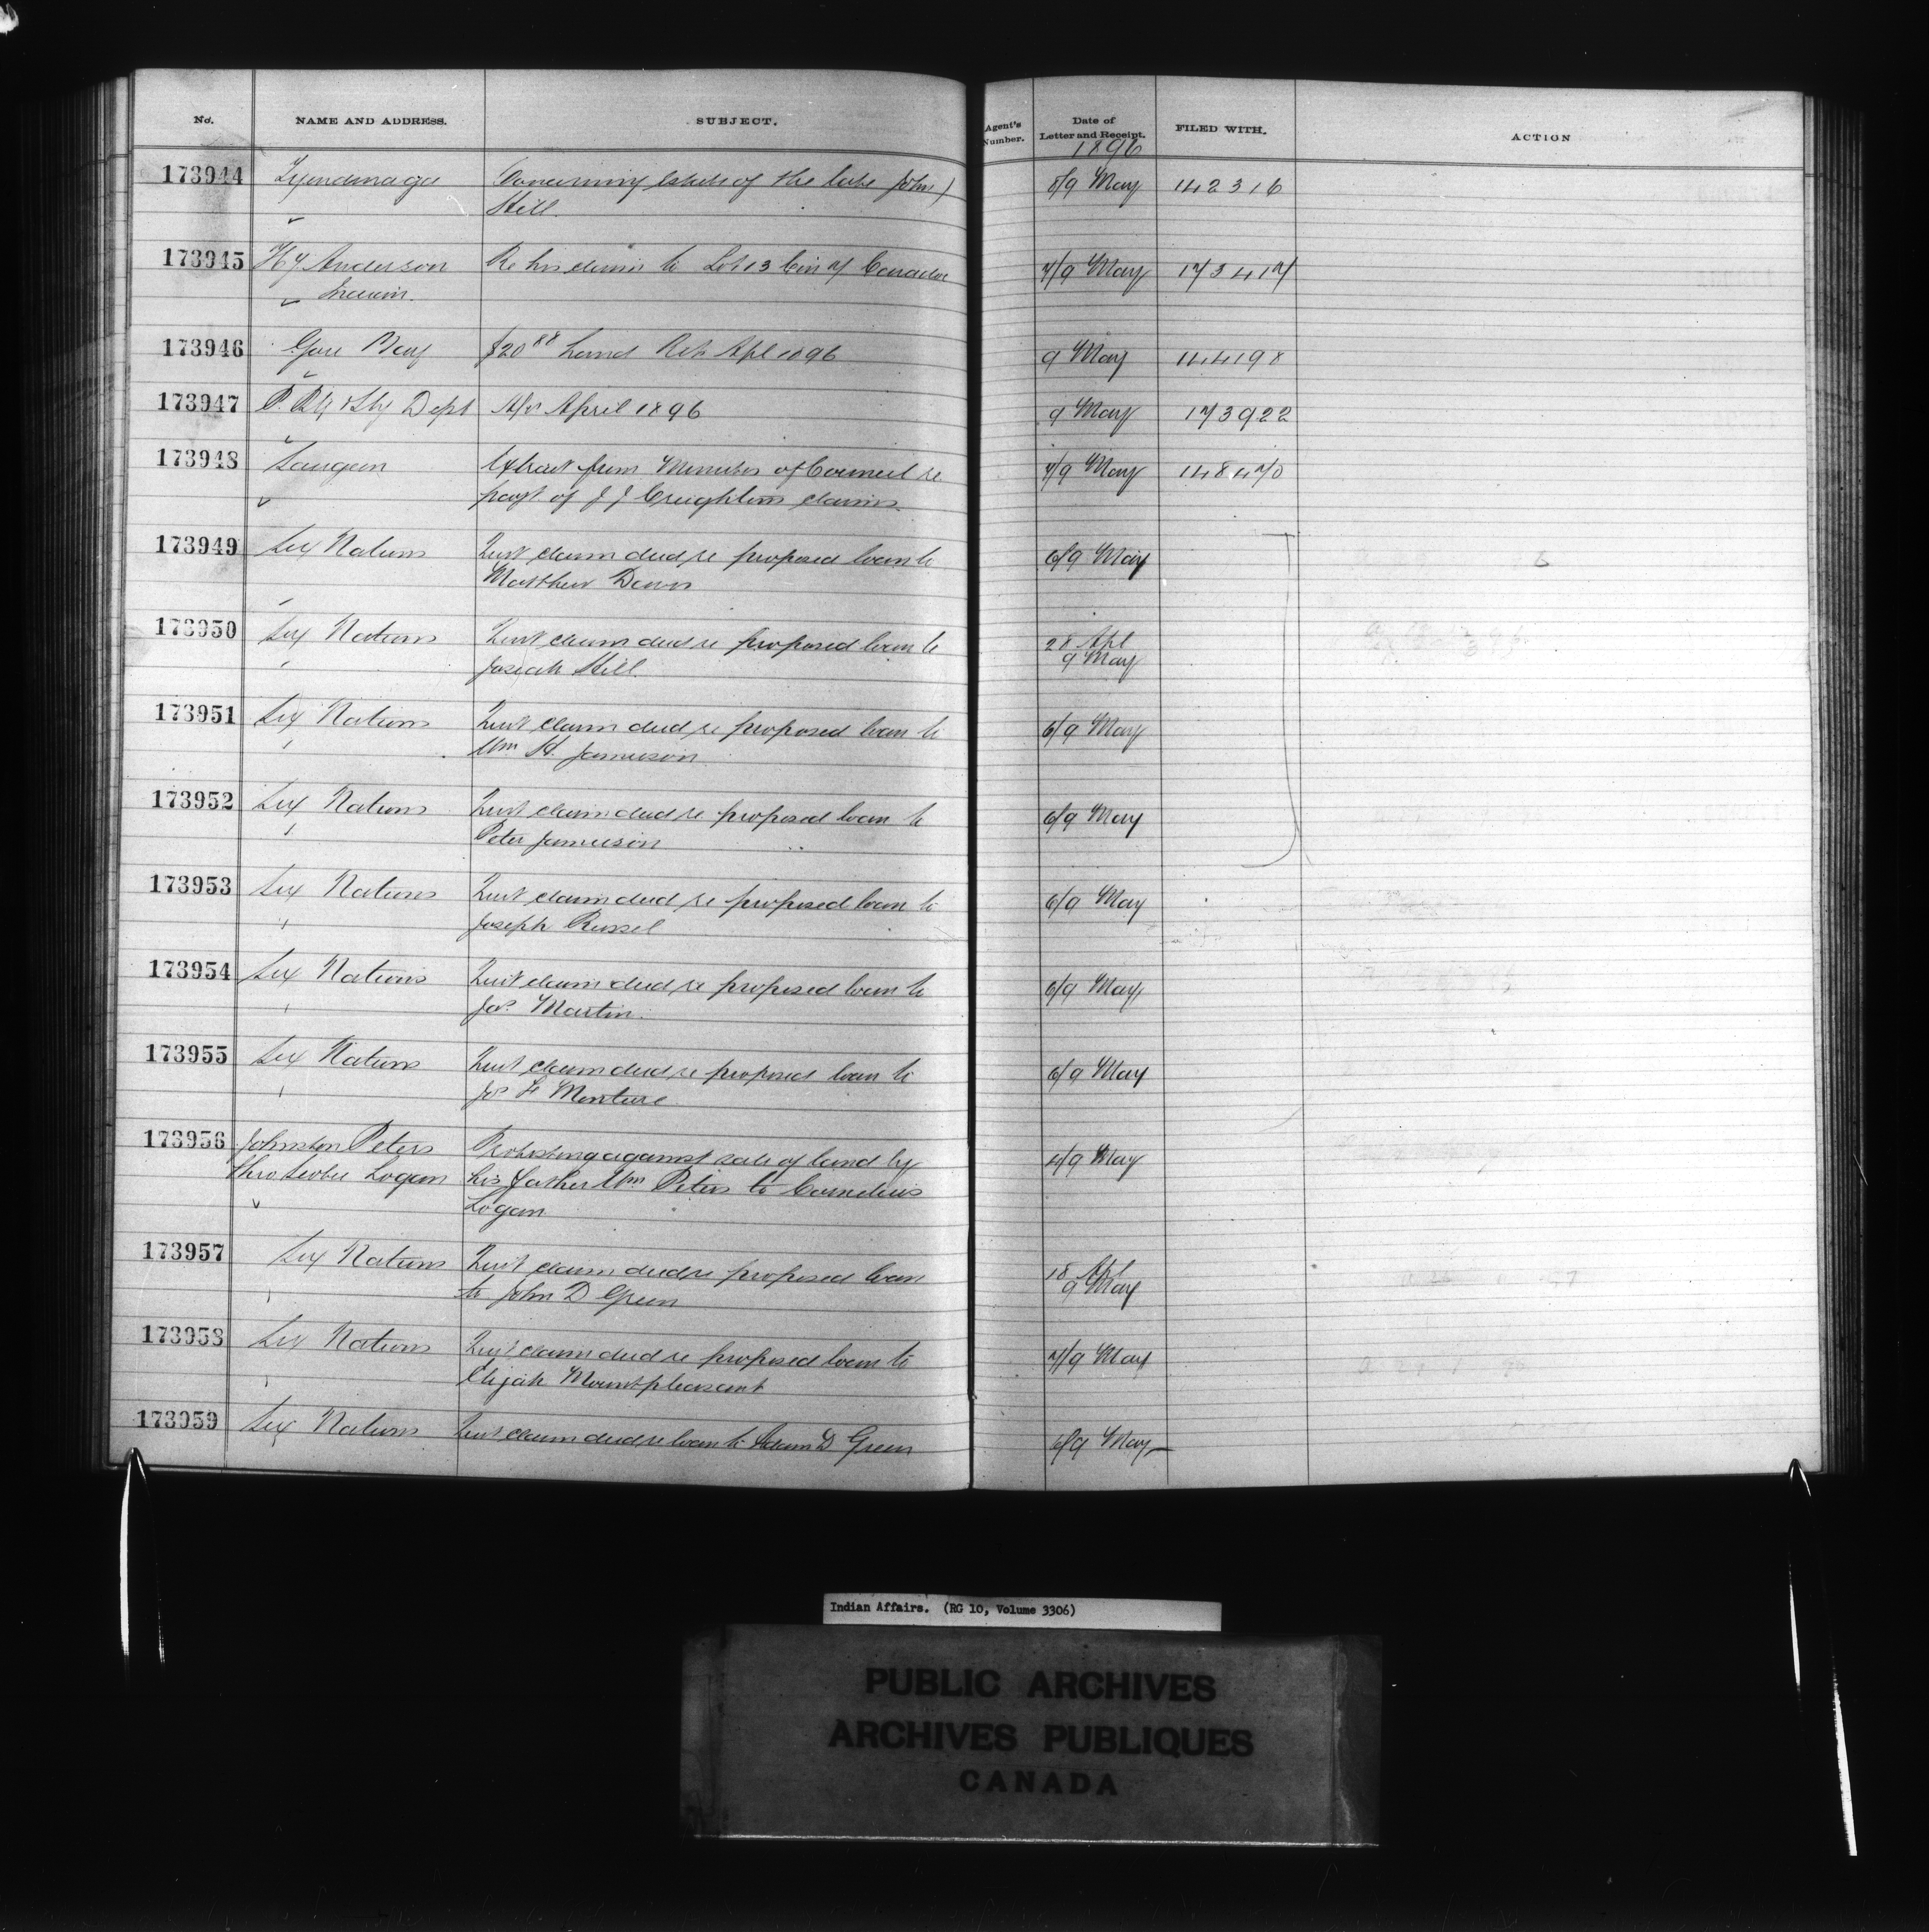 No. NAME AND ADDRESS. SUBJECT. Agent's Number. Date of Letter and Receipt. FILED WITH. ACTION
1896
173944 Tyendinaga Concerning Estate of the late John 8/9 May 142316
Hill.
173945 Hy Anderson Re his claim to Lot 13 Con 7 8/9 May 173417
173946 Gore Bay $20 88 Land Ret Apl 1896 9 May 144198
173947 P. Ptg & Sty Dept A/c April 1896 9 May 173922
173948 Saugeen Extract from Minutes of Council re 7/9 May 148470
payt of J J Creightons claims
173949 Six Nations Quit claim deed re proposed loan to 6/9 May
Matthew Davis
173950 Six Nations Quit claim deed re proposed loan to 28 Apl
Josiah Hill. 9 May
173951 Six Nations Quit claim deed re proposed loan to 6/9 May
Wm H. Jamieson
173952 Six Nations Quit claim deed re proposed loan to 6/9 May
Peter Jamieson
173953 Six Nations Quit claim deed re proposed loan to 6/9 May
Joseph Russel
173954 Six Nations Quit claim deed re proposed loan to 6/9 May
Jos. Martin.
173955 Six Nations Quit claim deed re proposed loan to 6/9 May
Jos F Monture
173956 Johnston Peters Protesting against sale of land by 4/9 May
thro Logan his father Wm Peters to Cornelius
Logan
173957 Six Nations Quit claim deed re proposed loan 18 Apl
to John D Green 9 May
173958 Six Nations Quit claim deed re proposed loan to 7/9 May
Elijah Mountpleasant
173959 Six Nations Quit claim deed re loan to Adam D Green 6/9 May
Indian Affairs. (RG 10, Volume 3306)
PUBLIC ARCHIVES
ARCHIVES PUBLIQUES
CANADA